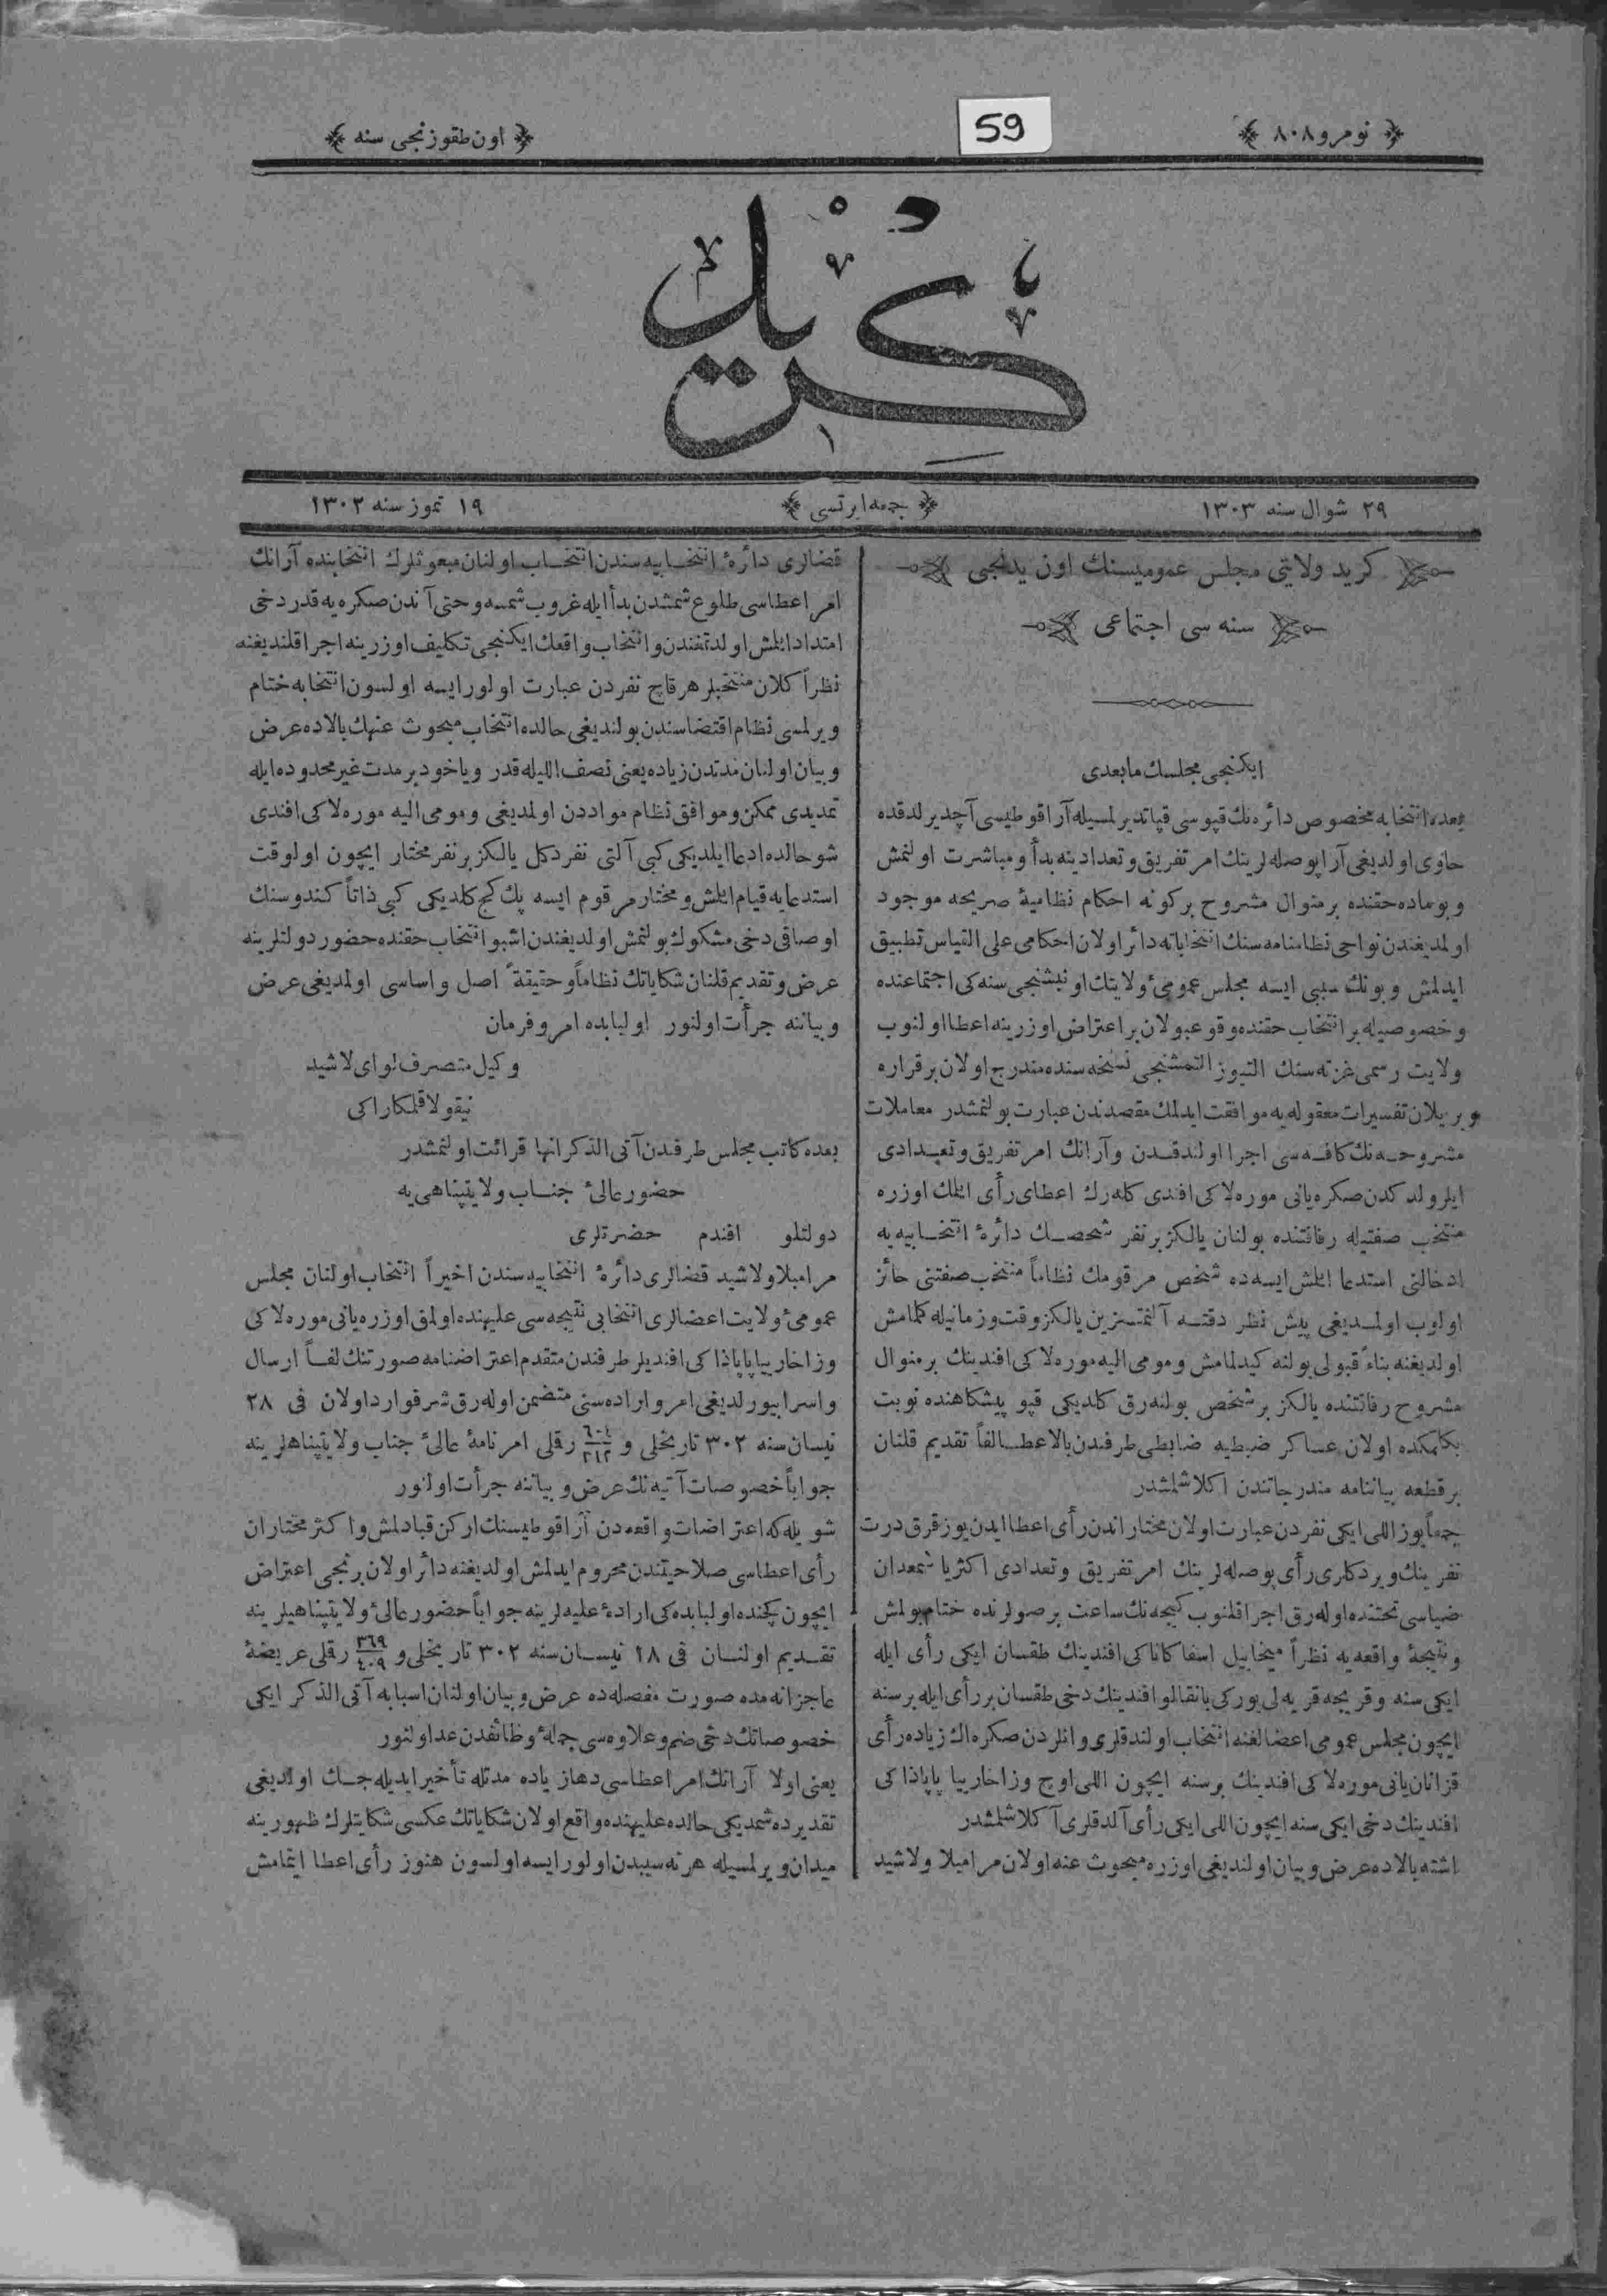 نومرو ٨٠٨
59
اون طقوزنجی سنه
كريد
٢٩ شوال سنه ١٣٠٣
جمعه ایرتسی
١٩ تموز سنه ١٣٠٢
كريد ولايتی مجلس عموميسنك اون يدنجی
سنه سی اجتماعی
ايكنجی مجلسك مابعدی
بعده انتخابه مخصوص دائره‌نك قپوسی قپاتديرلمسيله آرا قوطيسی آچديرلدقده
حاوی اولديغی آرا پوصله لرينك امر تفريق و تعدادينه بدأ و مباشرت اولنمش
و بوماده حقنده بر منوال مشروح بركونه احكام نظاميهٔ صريحه موجود
اولمديغندن نواحی نظامنامه سنك انتخاباته دائر اولان احكامی علی القياس تطبيق
ايدلمش و بونك سببی ايسه مجلس عمومیٔ ولايتك اون بشنجی سنه كی اجتماعنده
و خصوصيله بر انتخاب حقنده وقوعبولان بر اعتراض اوزرينه اعطا اولنوب
ولايت رسمی غزته سنك التيوز التمشنجی نسخه سنده مندرج اولان بر قراره
و بريلان تفسيرات معقوله يه موافقت ايدلمك مقصدندن عبارت بولنمشدر معاملات
مشروحه نك كافه سی اجرا اولندقدن و آرانك امر تفريق و تعدادی
ايلرولدكدن صكره يانی موره لاكی افندی كله رك اعطای رأی ايلمك اوزره
منتخب صفتيله رفاقتنده بولنان يالكز بر نفر شخصك دائرهٔ انتخابيه يه
ادخالنی استدعا ايلمش ايسه ده شخص مرقومك نظاماً منتخب صفتنی حائز
اولوب اولمديغی پيش نظر دقته آلنمقسزين يالكز وقت و زمانيله كلمامش
اولديغنه بناءً قبولی يولنه كيدلمامش و مومی اليه موره لاكی افندينك بر منوال
مشروح رفاقتنده يالكز بر شخص بولنه رق كلديكی قپو پيشكاهنده نوبت
بكلمكده اولان عساكر ضبطيه ضابطی طرفندن بالاعطا لفاً تقديم قلنان
بر قطعه بياننامه مندرجاتندن اكلاشلمشدر
جمعاً يوز اللی ايكی نفردن عبارت اولان مختاراندن رأی اعطا ايدن يوز قرق درت
نفرينك ويردكلری رأی پوصله لرينك امر تفريق و تعدادی اكثريا شمعدان
ضياسی تحتنده اوله رق اجرا قلنوب كيجه نك ساعت بر صولرنده ختام بولمش
و نتيجهٔ واقعه يه نظراً ميخاييل اسفاكاناكی افندينك طقسان ايكی رأی ايله
ايكی سنه و قريجه قريه لی يوركی يانقالو افندينك دخی طقسان بر رأی ايله بر سنه
ايچون مجلس عمومی اعضالغنه انتخاب اولندقلری و انلردن صكره اك زياده رأی
قزانان يانی موره لاكی افندينك بر سنه ايچون اللی اوچ و زاخاريا پاپاداكی
افندينك دخی ايكی سنه ايچون اللی ايكی رأی آلدقلری آكلاشلمشدر
اشته بالاده عرض و بيان اولنديغی اوزره مبحوث عنه اولان مرامبلا و لاشيد
قضالری دائرهٔ انتخابيه سندن انتخاب اولنان مبعوثلرك انتخابنده آرانك
امر اعطاسی طلوع شمسدن بدأ ايله غروب شمسه و حتی آندن صكره يه قدر دخی
امتداد ايلمش اولدقغندن و انتخاب واقعك ايكنجی تكليف اوزرينه اجرا قلنديغنه
نظراً كلان منتخبلر هر قاچ نفردن عبارت اولور ايسه اولسون انتخابه ختام
ويرلمسی نظام اقتضاسندن بولنديغی حالده انتخاب مبحوث عنهك بالاده عرض
و بيان اولنان مدتدن زياده يعنی نصف الليله قدر و ياخود بر مدت غير محدوده ايله
تمديدی ممكن و موافق نظام مواددن اولمديغی و مومی اليه موره لاكی افندی
شو حالده ادعا ايلديكی كبی آلتی نفر دكل يالكز بر نفر مختار ايچون اولوقت
استدعايه قيام ايلمش و مختار مرقوم ايسه پك كج كلديكی كبی ذاتاً كندوسنك
اوصافی دخی مشكوك بولنمش اولديغندن اشبو انتخاب حقنده حضور دولتلرينه
عرض و تقديم قلنان شكاياتك نظاماً و حقيقةً اصل و اساسی اولمديغی عرض
و بياننه جرأت اولنور اولبابده امر و فرمان
وكيل متصرف لوای لاشيد
نيقولا قلمكاراكی
بعده كاتب مجلس طرفندن آتی الذكر انها قرائت اولنمشدر
حضور عالیٔ جناب ولايتپناهی يه
دولتلو افندم حضرتلری
مرامبلا و لاشيد قضالری دائرهٔ انتخابيه سندن اخيراً انتخاب اولنان مجلس
عمومیٔ ولايت اعضالری انتخابی نتيجه سی عليهنده اولمق اوزره يانی موره لاكی
و زاخاريا پاپاداكی افنديلر طرفندن متقدم اعتراضنامه صورتنك لفاً ارسال
و اسرا بيورلديغی امر و اراده سنی متضمن اوله رق شرفوارد اولان فی ٢٨
نيسان سنه ٣٠٢ تاريخلی و ٦٠٤/٢١٢ رقملی امرنامهٔ عالیٔ جناب ولايتپناهلرينه
جواباً خصوصات آتيه نك عرض و بياننه جرأت اولنور
شويله كه اعتراضات واقعه دن آرا قوطيسنك اركن قپادلمش و اكثر مختاران
رأی اعطاسی صلاحيتندن محروم ايدلمش اولديغنه دائر اولان برنجی اعتراض
ايچون كچنده اولبابده كی ارادهٔ عليه لرينه جواباً حضور عالیٔ ولايتپناهيلرينه
تقديم اولنان فی ١٨ نيسان سنه ٣٠٢ تاريخلی و ٣٦٩/٤٠٩ رقملی عريضهٔ
عاجزانه مده صورت مفصله ده عرض و بيان اولنان اسبابه آتی الذكر ايكی
خصوصاتك دخی ضم و علاوه سی جملهٔ وظائفدن عد اولنور
يعنی اولا آرانك امر اعطاسی دها زياده مدتله تأخير ايديله جك اولديغی
تقديرده شمديكی حالده عليهنده واقع اولان شكاياتك عكسی شكايتلرك ظهورينه
ميدان ويرلمسيله هر نه سببدن اولور ايسه اولسون هنوز رأی اعطا ايتمامش